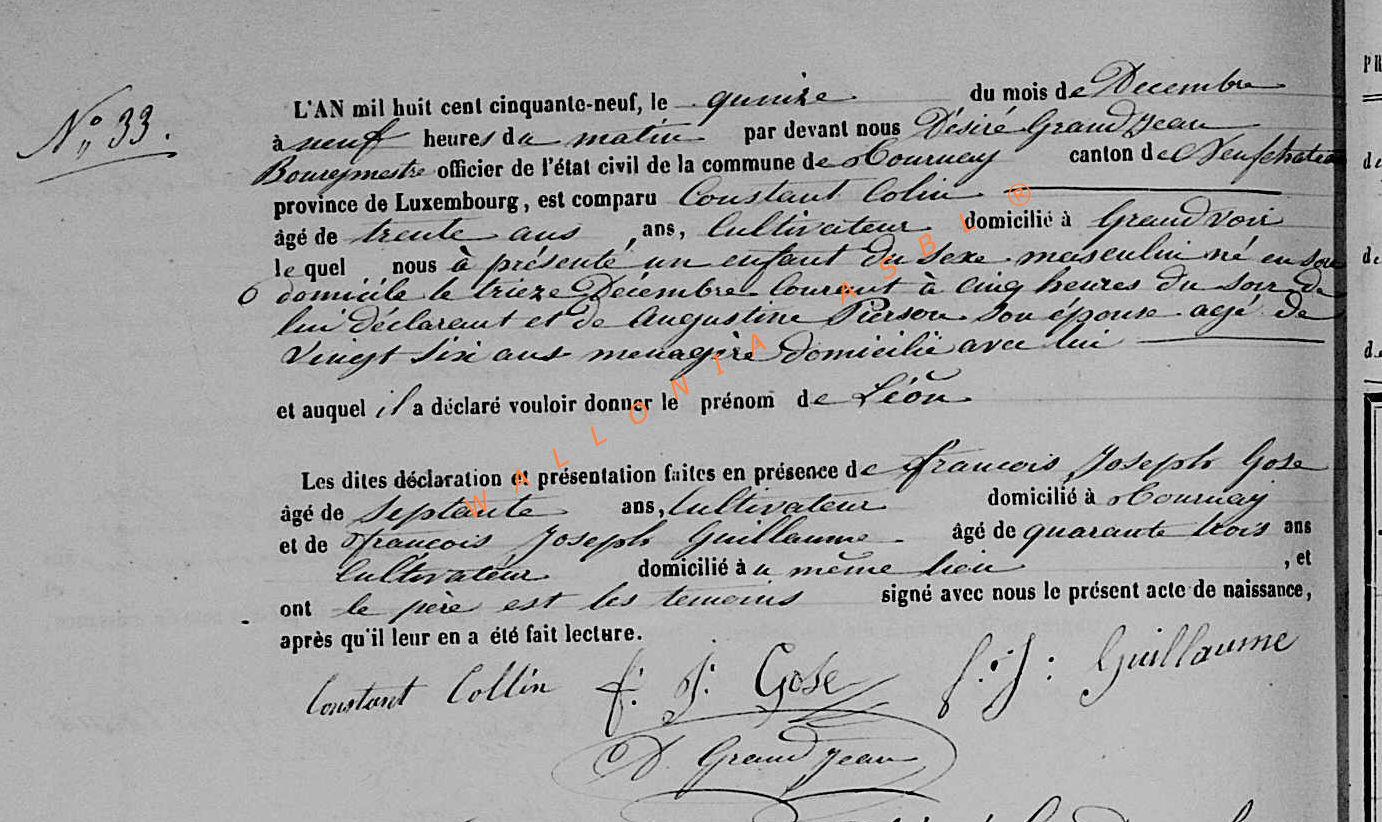 N° 33.
L'AN mil huit cent cinquante-neuf, le quinze du mois de Decembre
à neuf heures du matin par devant nous Désiré Grandjean
Bourgmestre officier de l'état civil de la commune de Tournay canton de Neufchateau
province de Luxembourg, est comparu Constant Colin
âgé de trente ans, ans, Cultivateur domicilié à Grandvoir
le quel nous à présenté un enfant du sexe masculin né en son
domicile le trieze Decembre Courant à Cinq heures du soir de
lui déclarant et de Augustine Pierson son épouse agé de
vingt six ans menagère domicilié avec lui
et auquel il a déclaré vouloir donner le prénom de Léon
Les dites déclaration et présentation faites en présence de francois Joseph Gose
âgé de septante ans, Cultivateur domicilié à Tournay
et de françois Joseph Guillaume âgé de quarante trois ans
Cultivateur domicilié à u même lieu, et
ont le père est les temoins signé avec nous le présent acte de naissance,
après qu'il leur en a été fait lecture.
Constant Collin f. J. Gose f. J. Guillaume
D. Grandjean
WALLONIA ASBL ®
PR
de
de
de